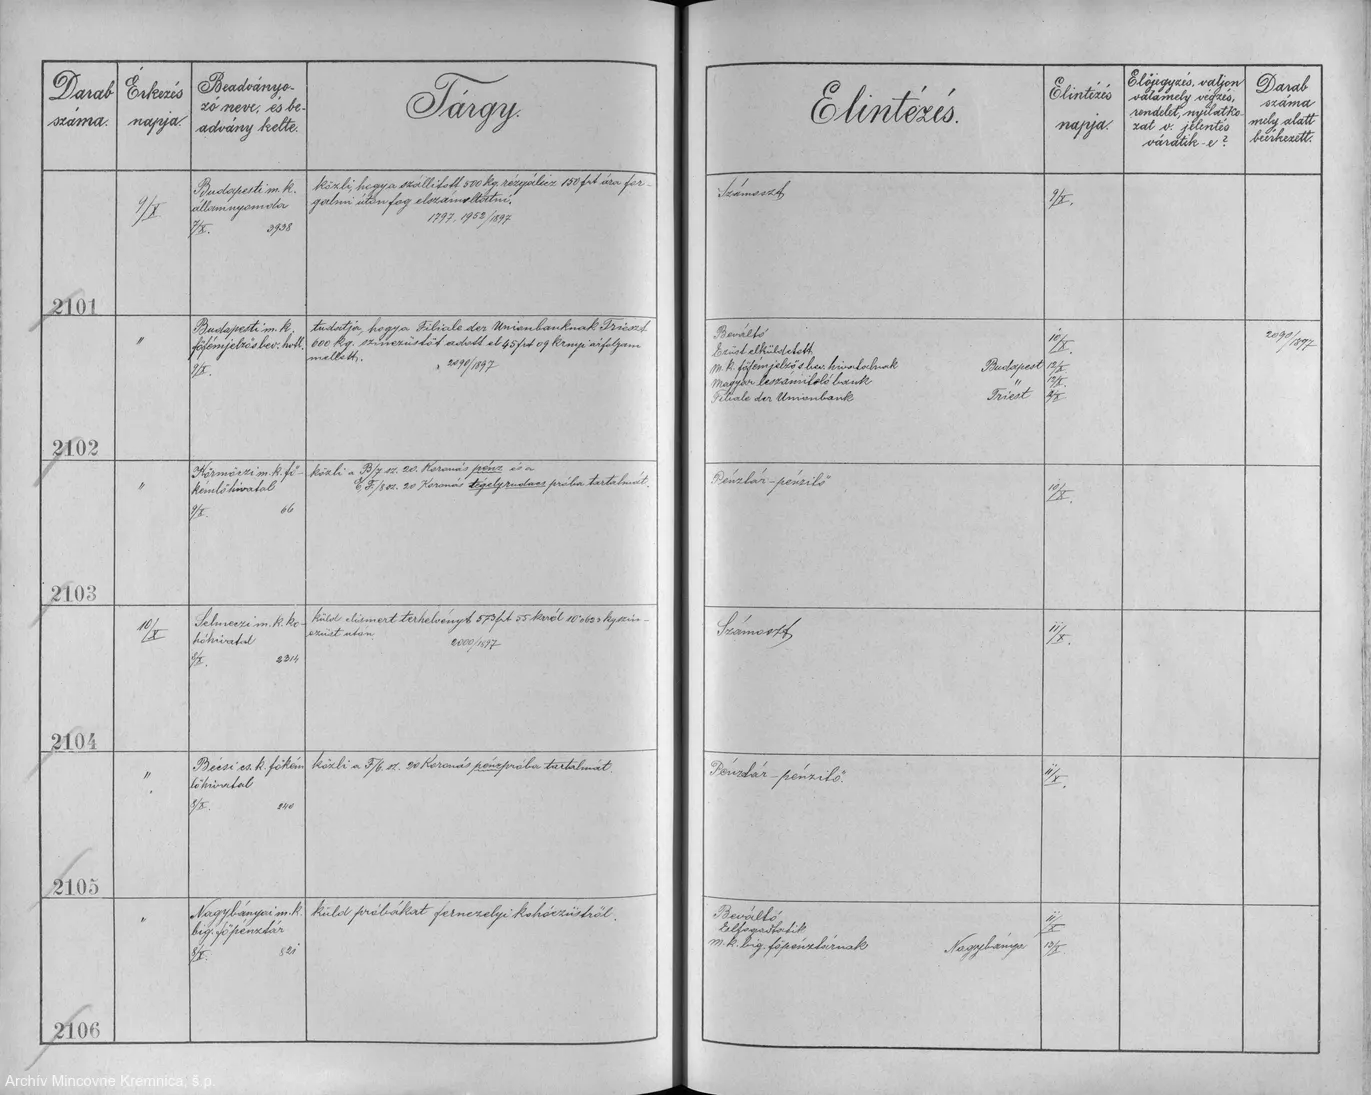 Darab száma.
Érkezés napja.
Beadványo-
zó neve, és be-
advány kelte.
Tárgy.
Elintézés.
Elintézés napja.
Előjegyzés, valjon
valamely végzés,
rendelet, nyilatko-
zat v. jelentés
váratik-e?
Darab
száma
mely alatt
beérkezett.
2101
9/X
Budapesti m. k.
államnyomda
7/X. 3938
közli, hogy a szállitott 500 kg. rézgálicz 150 frt ára for-
galmi úton fog elszámoltatni.
1797. 1952/1897
Számoszt
9/X.
2102
"
Budapesti m. k.
főfémjelző s bev. hiv.
9/X.
tudatja, hogy a Filiale der Unionbanknak Triest
600 kg. színezüstöt adott el 45 frt 09 krnyi árfolyam
mellett.
2090/1897
Beváltó
Ezüst elküldetett
m. k. főfémjelző s bev. hivatalnak Budapest
Magyar leszámitoló bank "
Filiale der Unionbank Triest
10/X.
12/X.
2090/1897
2103
"
Körmöczi m. k. fő-
kémlőhivatal
9/X. 66
közli a B/7 sz. 20. Koronás pénz és a
sz. 20 Koronás tégelyrudacs próba tartalmát.
Pénztár - pénzilő
10/X.
2104
10/X
Selmeczi m. k. ko-
hóhivatal
8/X. 2314
küld elismert terhelvényt 573 frt 55 krról kg szín-
ezüst után
2000/1897
Számoszt
11/X.
2105
"
Bécsi cs. k. főkém
lőhivatal
8/X. 240
közli a F/6. sz. 20 Koronás pénzpróba tartalmát.
Pénztár - pénzilő.
11/X.
2106
"
Nagybányai m. k.
big. főpénztár
8/X. 821
küld próbákat fernezelyi kohóezüstről.
Beváltó
Elfogadtatik
m. k. big. főpénztárnak Nagybánya
11/X
13/X.
Archív Mincovne Kremnica, š.p.